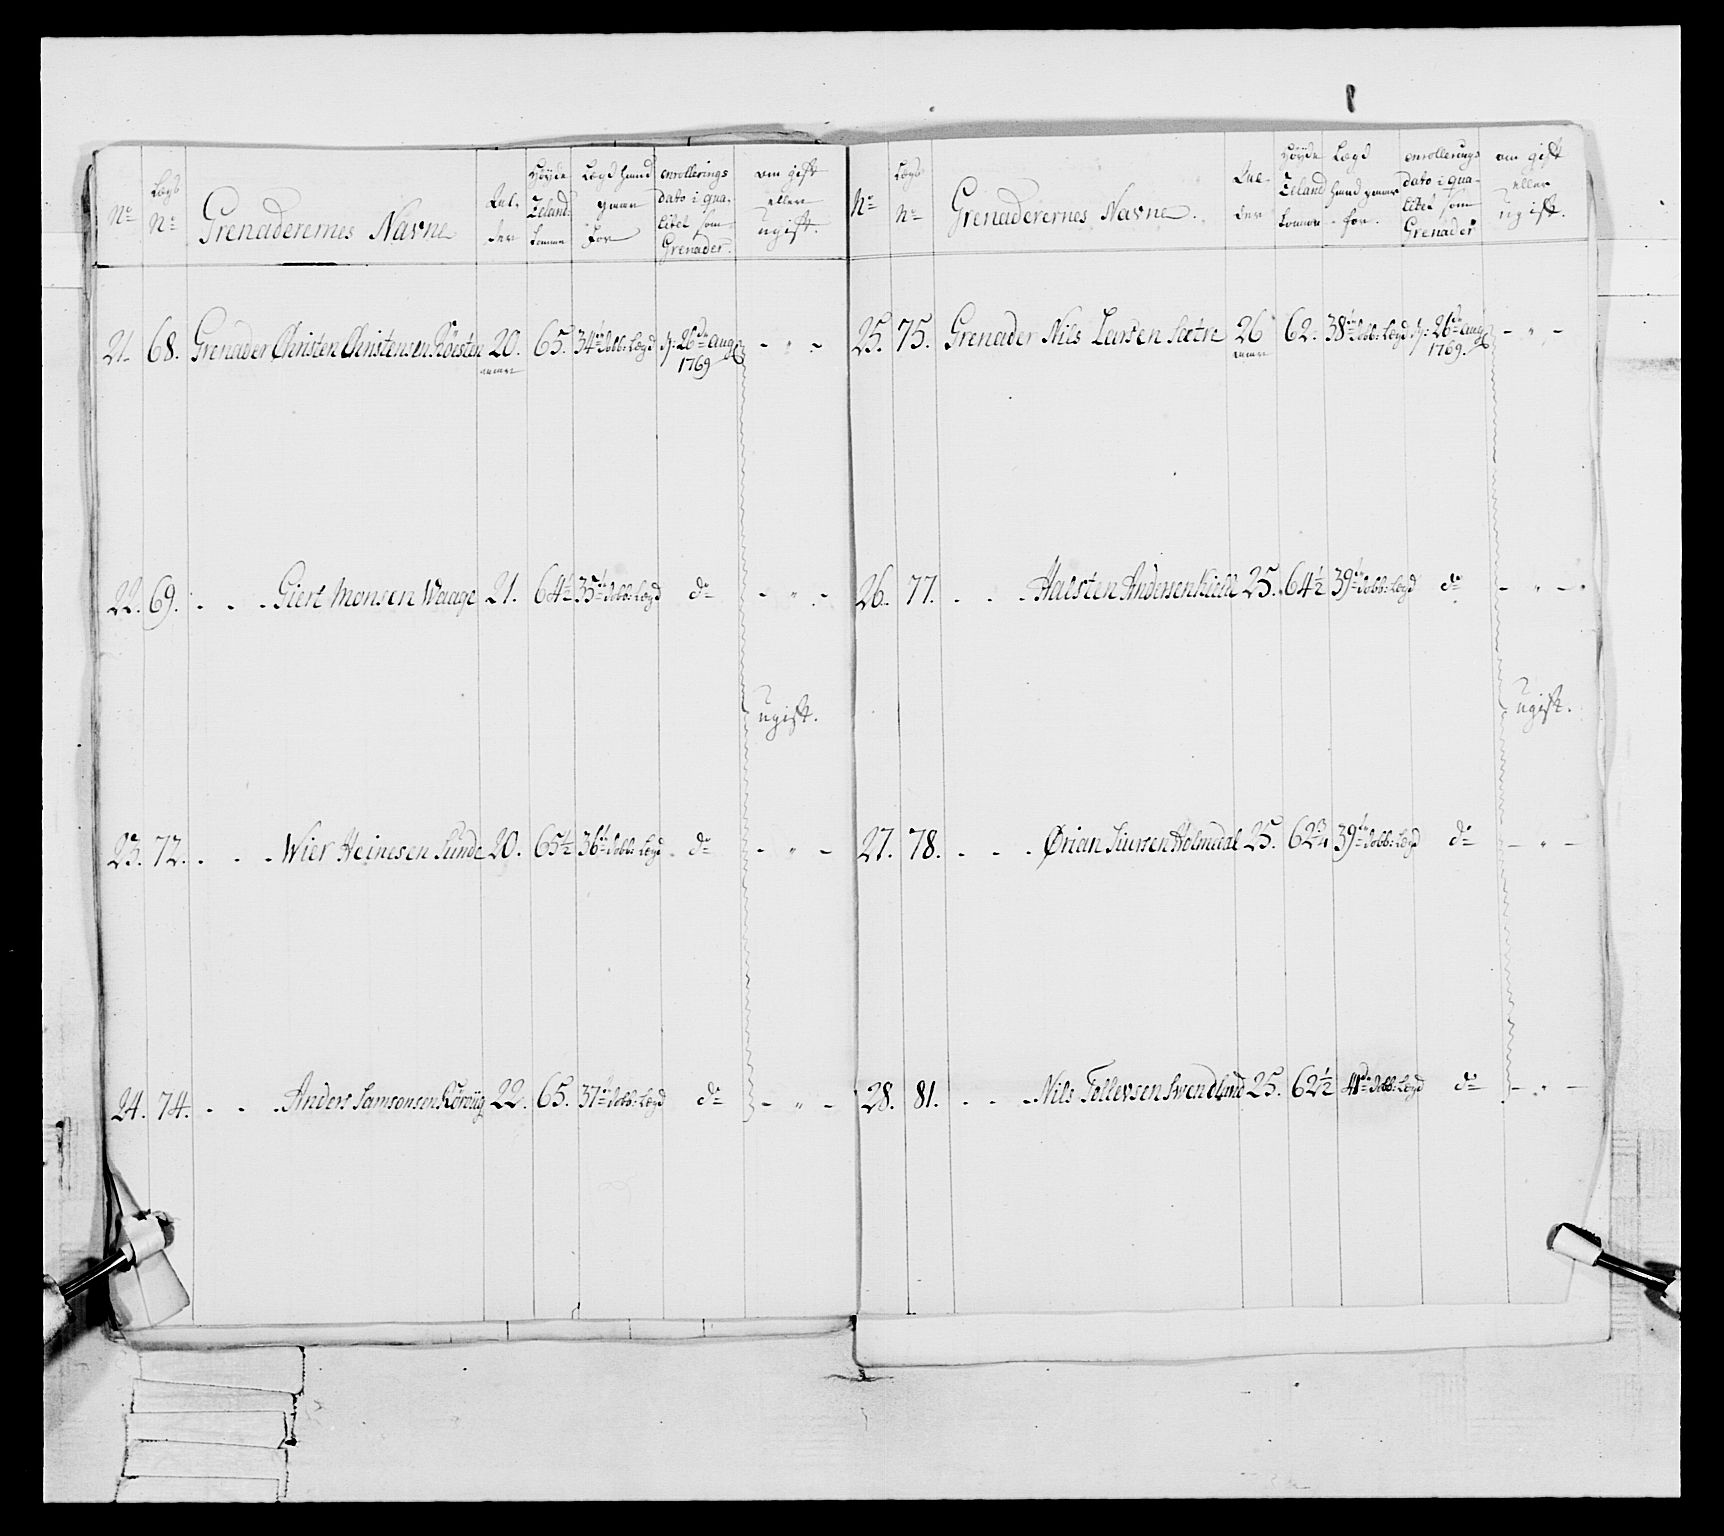 No
Lægs No
Grenaderernes Navne
Al-
der
Höyde
Zeland.
tomme
Lægd hand
gaaer
For
enrollerings
dato i qua-
litet som
Grenader.
om gift
eller
ugift.
21. 68. Grenader Christen Christensen Röesten 20. 65. 34te dobb: Lægd d: 26de aug 1769 - " -
aar
22. 69. - - - Giert Monsen Waage 21. 64½ 35te dobb: Lægd do - " -
ugift.
23. 72. - - - Wier Heinesen Sunde 20. 65½ 36te dobb: Lægd do - " -
24. 74. - - - Anders Samsonsen 22. 65. 37te dobb: Lægd do - " -
No
Lægs
No
Grenaderernes Navne.
Al-
der
Höyde
Zeland
tomme
Lægd
hand gaaer
for.
enrollerings
dato i qua-
litet som
Grenader
om gift
eller
ugift.
25. 75. Grenader Nils Larsen Sætre 26 62. 38te dobb: Lægd d: 26de aug 1769. - " -
26. 77. - - - Halsten Andersen 25. 64½ 39te dobb: Lægd do - " -
ugift.
27. 78. - - - Ørian Siursen Holmedal 25. 62¾ 39te dobb: Lægd do - " -
28. 81. - - - Nils Tollevsen Svendland 25. 62½ 41de dobb: Lægd do - " -